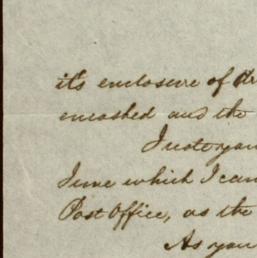 its enclosure of
encashed and the
I note your
June which I can
Post Office, as the
As you